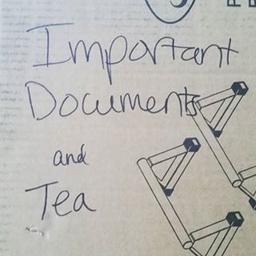 Important
Documents
and
Tea